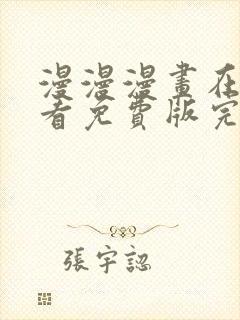 漫漫漫畫在
看免費版完
張宇認